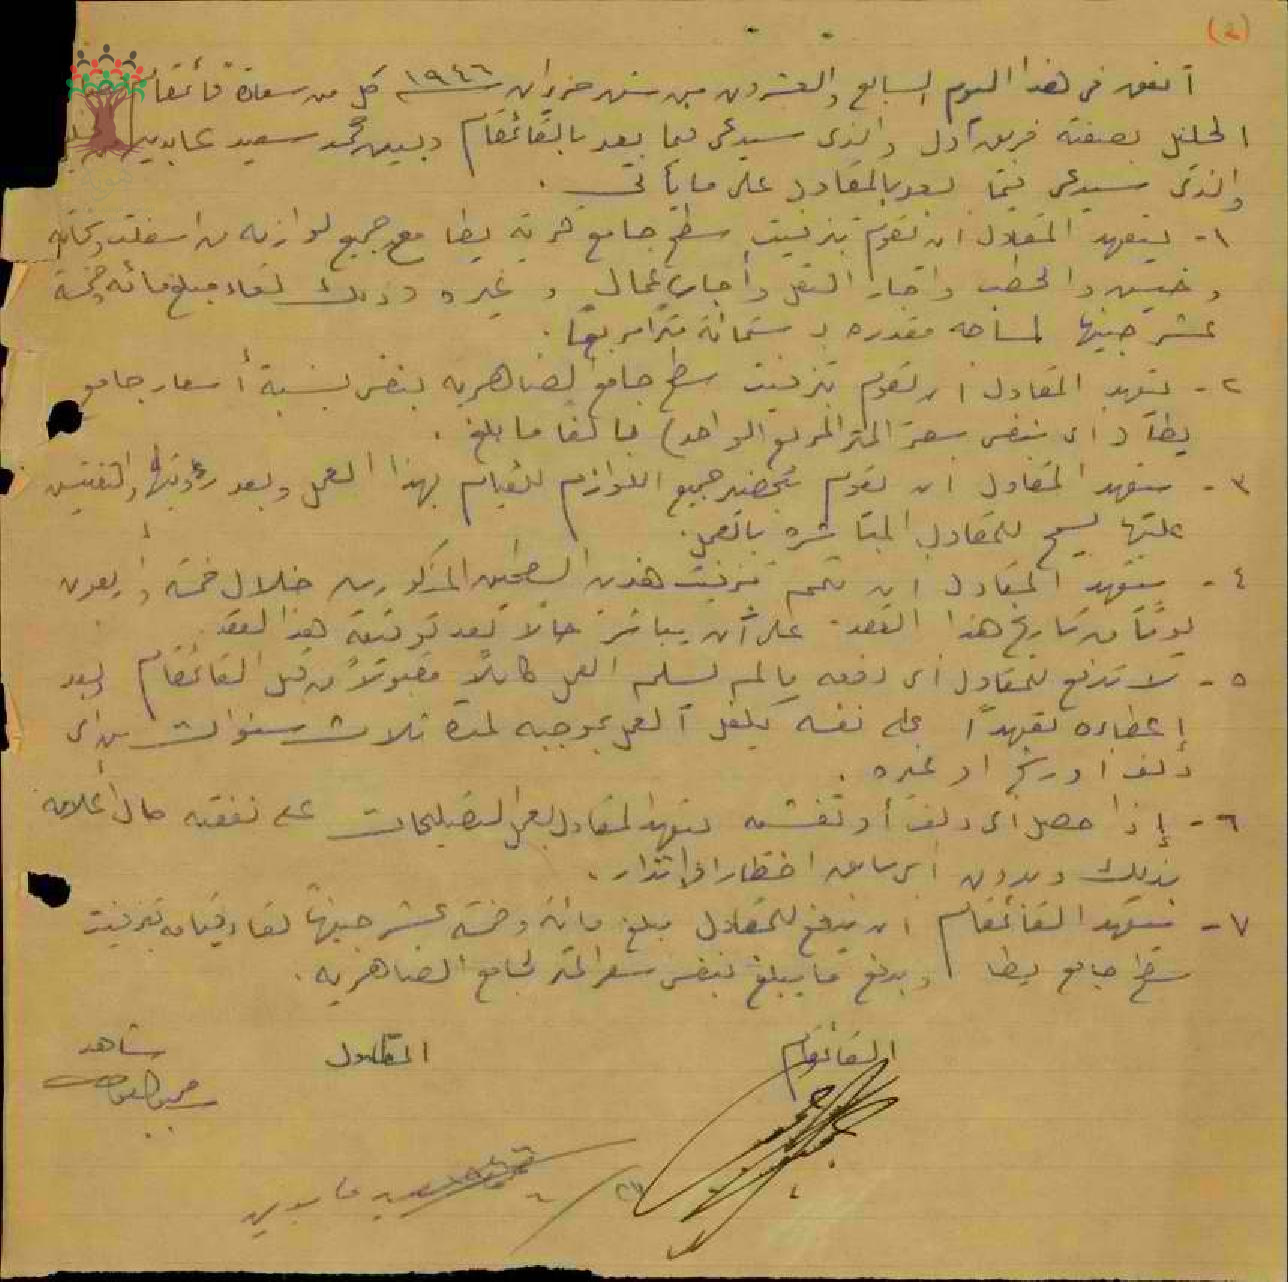 (٢)
اتفق في هذا اليوم السابع والعشرون من شهر حزيران سنة ١٩٤٦ كل من سعادة قائمقام
الخليل بصفته فريق أول والذي سيدعى فيما بعد بالقائمقام وبين محمد سعيد عابدين
والذي سيدعى فيما بعد بالمقاول على ما يأتي .
١- يتعهد المقاول ان يقوم بتزفيت سطح جامع قرية يطا مع جميع لوازمه من اسفلت
وخيش والحطب واجار النقل وأجار عمال وغيره وذلك لقاء مبلغ مائه وخمسة
عشر جنيها لمساحه مقدره بـ ستمائة مترا مربعا .
٢- يتعهد المقاول ان يقوم بتزفيت سطح جامع الضاهريه بنفس نسبة أسعار جامع
يطا (اي بنفس سعر المتر المربع الواحد) بالغا ما بلغ .
٣- يتعهد المقاول ان يقوم بتحضير جميع اللوازم للقيام بهذا العمل وبعد رؤيتها والتفتيش
عليها يسمح للمقاول المباشره بالعمل .
٤- يتعهد المقاول ان يتمم تزفيت هذين السطحين المذكورين خلال خمسة وأربعون
يوما من تاريخ هذا العقد على أن يباشر حالا بعد توقيعه هذا العقد .
٥- لا تدفع للمقاول اي دفعه ما لم يسلم العمل كاملا مقبولا من قبل القائمقام وبعد
إعطاءه تعهدا على نفسه يكفل العمل بموجبه لمدة ثلاث سنوات من اي
دلف او رشح او غيره .
٦- إذا حصل اي دلف أو تفشمه يتعهد المقاول بعمل التصليحات على نفقته حال اعلامه
بذلك وبدون اي سابق اخطار او انذار .
٧- يتعهد القائمقام ان يدفع للمقاول مبلغ مائة وخمسة عشر جنيها لقاء قيامه بتزفيت
سطح جامع يطا ويدفع ما يبلغ بنفس سعر المتر لجامع الضاهريه .
القائمقام المقاول شاهد
سعيد عابدين